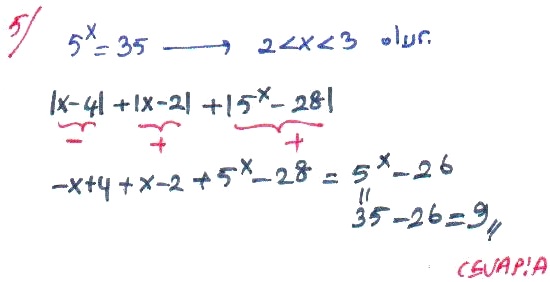 5/ 5^x = 35 → 2<x<3 olur.
|x-4| + |x-2| + |5^x - 28|
- + +
-x+4 + x-2 + 5^x - 28 = 5^x - 26
35 - 26 = 9,,
CEVAP: A